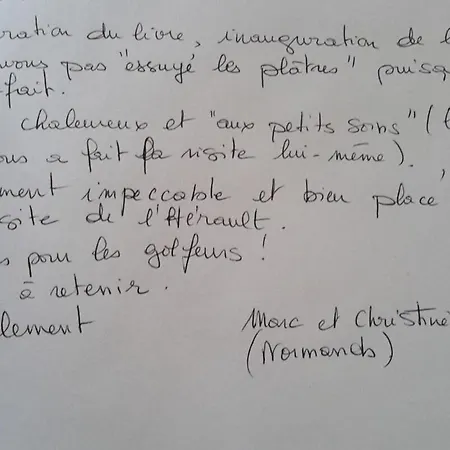 ration du livre, inauguration de l
vons pas "essuyé les plâtres" puisq
fait.
chaleureux et "aux petits soins" (l
ous a fait la visite lui-même).
ment impeccable et bien place
site de l'Hérault.
s pour les golfeurs !
à retenir.
lement
Marc et Christine
(Normands)